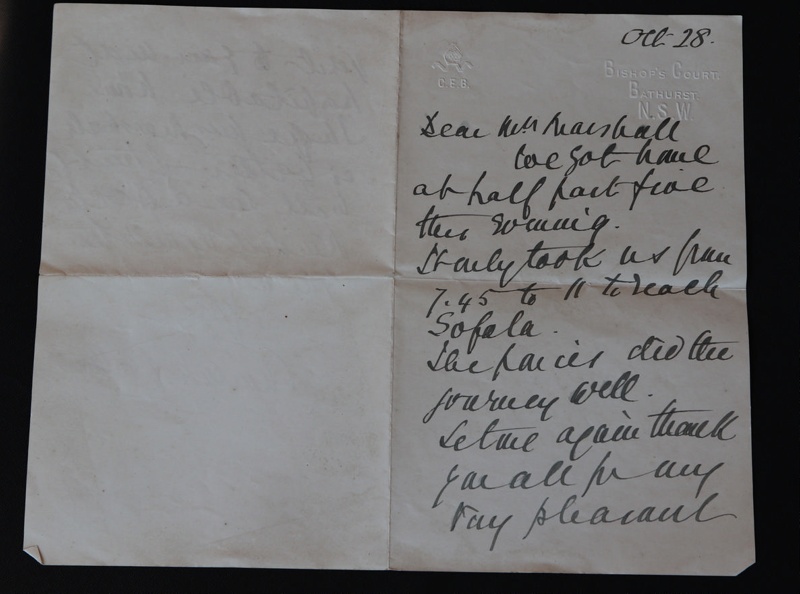 Oct 28.
C.E.B.
BISHOP'S COURT,
BATHURST
N.S.W.
Dear Mrs Marshall
We got home
at half past five
this evening.
It only took us from
7.45 to 11 to reach
Sofala.
The ponies did the
journey well.
Let me again thank
you all for my
very pleasant